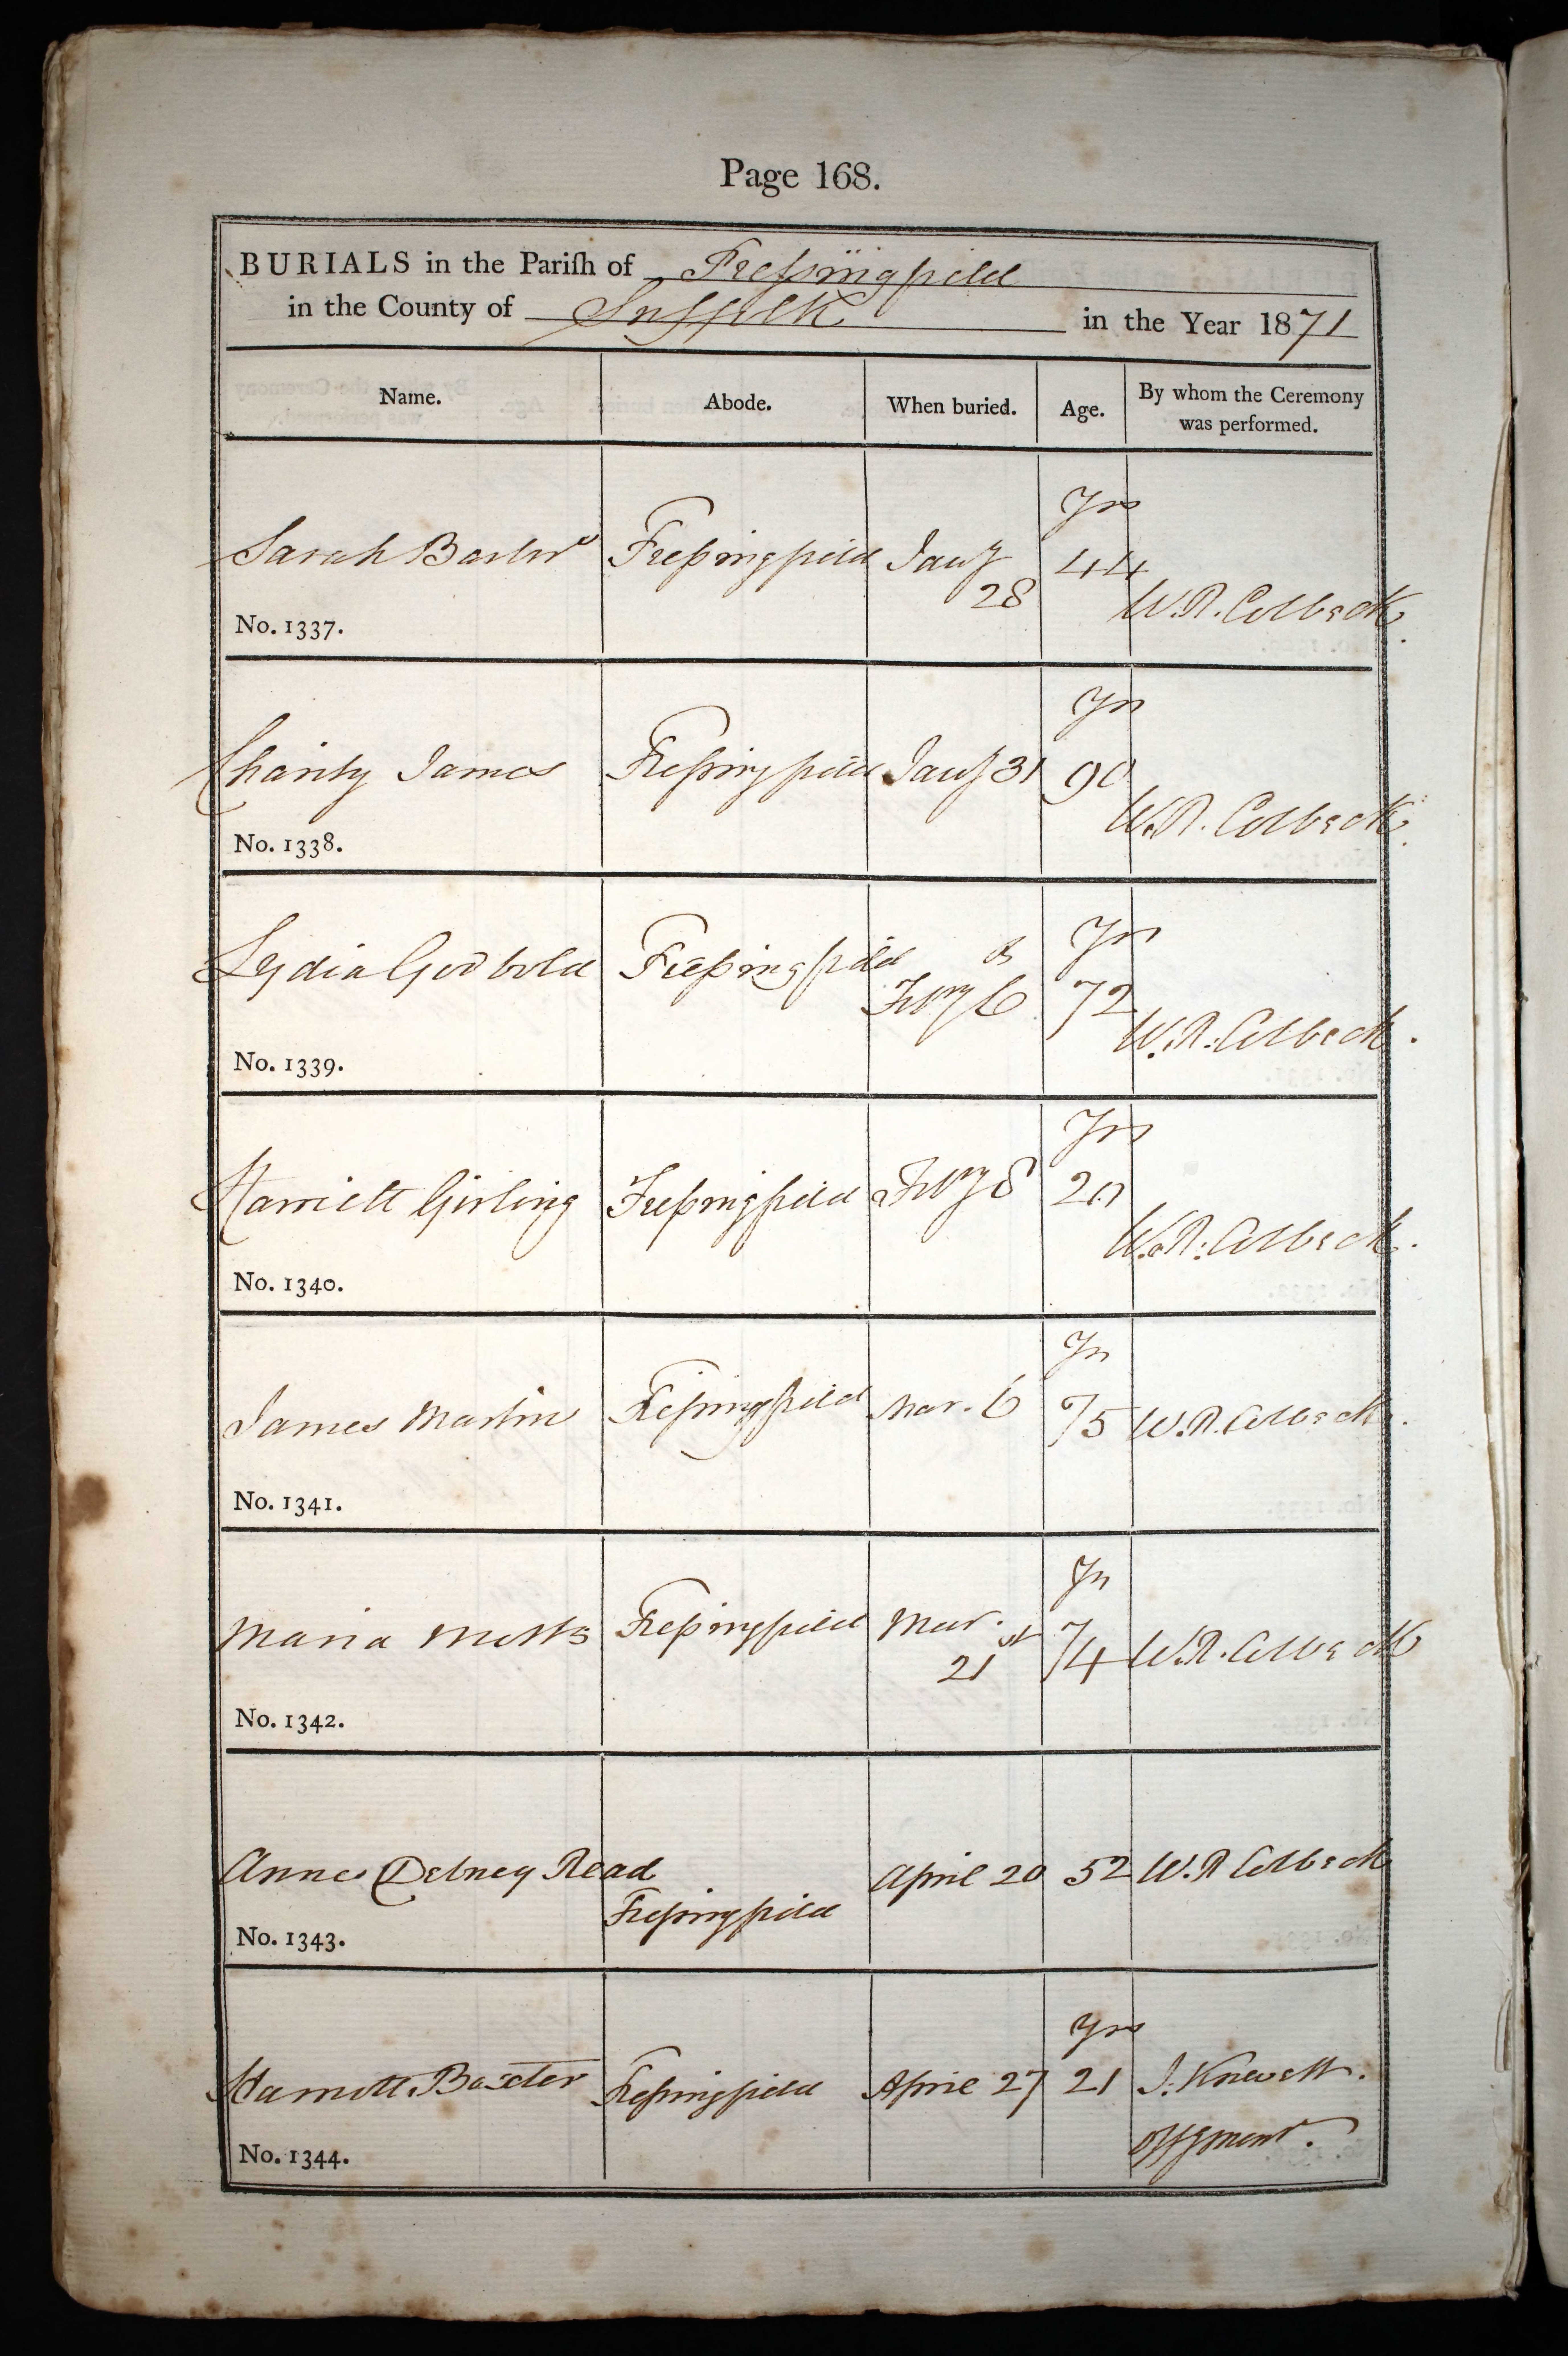 Page 168.
BURIALS in the Pariſh of Freſsingfield
in the County of Suffolk in the Year 1871
Name. Abode. When buried. Age. By whom the Ceremony was performed.
Yrs
Sarah Freſsingfield Jany 44
28
W. R. Colbeck.
No. 1337.
Yrs
Charity James Freſsingfield Jany 31 90
W. R. Colbeck.
No. 1338.
Yrs
Lydia Godbold Freſsingfield
Febry 6 72
W. R. Colbeck.
No. 1339.
Yrs
Harriett Girling Freſsingfield Febry 8
W. R. Colbeck.
No. 1340.
Yrs
James Martin Freſsingfield Mar. 6 75 W. R. Colbeck.
No. 1341.
Yrs
Maria Freſsingfield Mar. 74 W. R. Colbeck
21st
No. 1342.
Anne Debney Read April 20 52 W. R Colbeck
Freſsingfield
No. 1343.
Yrs
Harriott Baxter Freſsingfield April 27 21 J. Knevett.
No. 1344.